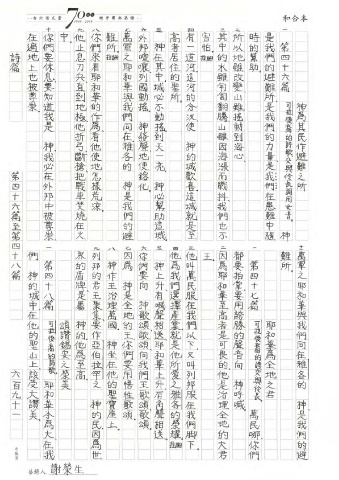 和合本
70
神為其民作避難之所
一 第四十六篇 可拉後裔的詩歌交與伶長調用女音 神
是我們的避難所是我們的力量是我們在患難中隨
時的幫助
二 所以地雖改變山雖搖動到海心
三 其中的水雖匉訇翻騰山雖因海漲而戰抖我們也不
害怕 細拉
四 有一道河這河的分汊使 神的城歡喜這城就是至
高者居住的聖所
五 神在其中城必不動搖到天一亮 神必幫助這城
六 外邦喧嚷列國動搖 神發聲地便鎔化
七 萬軍之耶和華與我們同在雅各的 神是我們的避
難所 細拉
八 你們來看耶和華的作為看他使地怎樣荒涼
九 他止息刀兵直到地極他折弓斷槍把戰車焚燒在火
十 你們要休息要知道我是 神我必在外邦中被尊崇
在遍地上也被尊崇
土 萬軍之耶和華與我們同在雅各的 神是我們的避
難所
耶和華為全地之君
一 第四十七篇 可拉後裔的詩交與伶長 萬民哪你們
都要拍掌要用誇勝的聲音向 神呼喊
二 因為耶和華至高者是可畏的他是治理全地的大君
王
三 他叫萬民服在我們以下又叫列邦服在我們腳下
四 他為我們選擇產業就是他所愛之雅各的榮耀 細拉
五 神上升有喊聲相送耶和華上升有角聲相送
六 你們要向 神歌頌歌頌向我們王歌頌歌頌
七 因為 神是全地的王你們要用悟性歌頌
八 神作王治理萬國 神坐在他的聖寶座上
九 列邦的君王聚集要作亞伯拉罕之 神的民因為世
界的盾牌是屬 神的他為至高
頌讚錫安之榮美
一 第四十八篇 可拉後裔的詩歌 耶和華本為大在我
們 神的城中在他的聖山上該受大讚美
詩篇 第四十六篇至第四十八篇 六百九十一
抄錄人 謝榮生